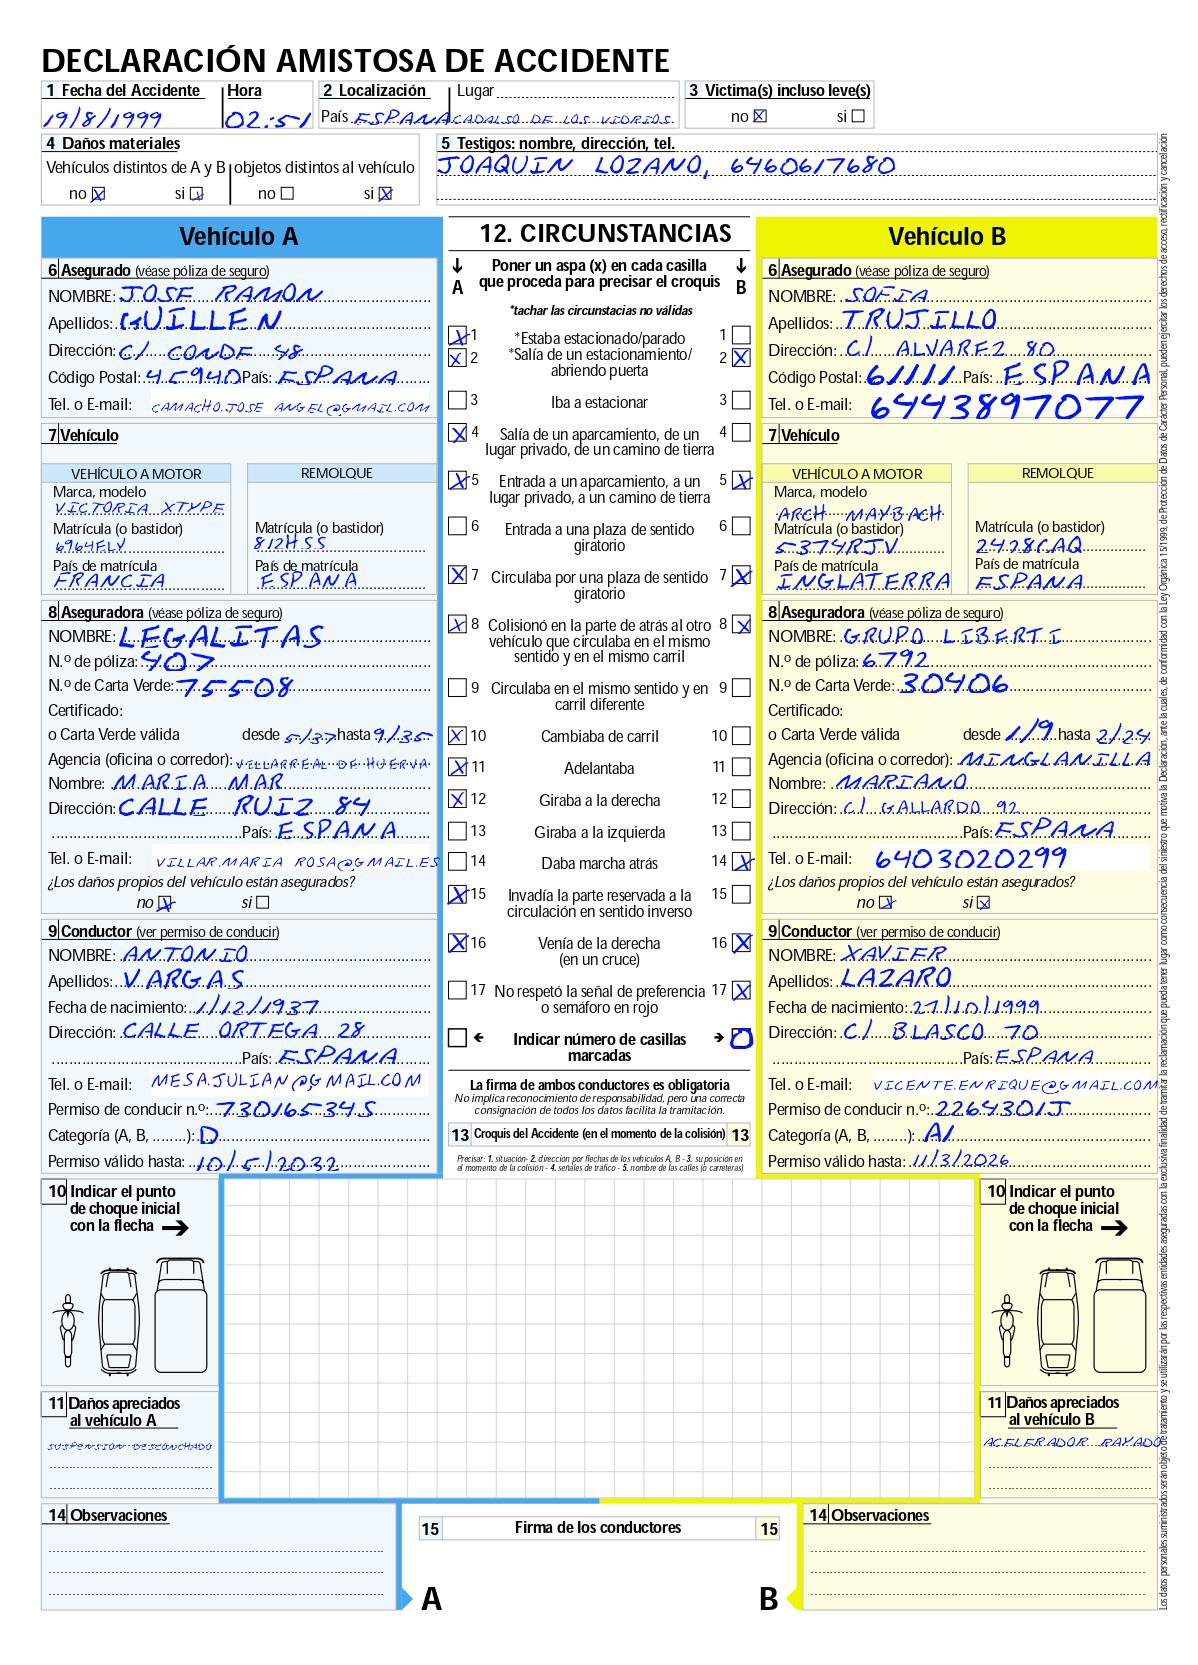 DECLARACIÓN AMISTOSA DE ACCIDENTE
1 Fecha del Accidente Hora 2 Localización Lugar 3 Victima(s) incluso leve(s)
19/8/1999 02:51 País ESPANA CADALSO DE LOS VIDRIOS no X si
4 Daños materiales 5 Testigos: nombre, dirección, tel.
Vehículos distintos de A y B objetos distintos al vehículo JOAQUIN LOZANO, 6460617680
no X si X no si X
Vehículo A
6 Asegurado (véase póliza de seguro)
NOMBRE: JOSE RAMON
Apellidos: GUILLEN
Dirección: C/ CONDE 48
Código Postal: 45940 País: ESPANA
Tel. o E-mail: CAMACHO.JOSE ANGEL@GMAIL.COM
7 Vehículo
VEHÍCULO A MOTOR REMOLQUE
Marca, modelo
VICTORIA XTYPE
Matrícula (o bastidor) Matrícula (o bastidor)
6964ELV 812HSS
País de matrícula País de matrícula
FRANCIA ESPANA
8 Aseguradora (véase póliza de seguro)
NOMBRE: LEGALITAS
N.º de póliza: 407
N.º de Carta Verde: 75508
Certificado:
o Carta Verde válida desde 5/37 hasta 9/35
Agencia (oficina o corredor): VILLARREAL DE HUERVA
Nombre: MARIA MAR
Dirección: CALLE RUIZ 84
País: ESPANA
Tel. o E-mail: VILLAR.MARIA ROSA@GMAIL.ES
¿Los daños propios del vehículo están asegurados?
no X si
9 Conductor (ver permiso de conducir)
NOMBRE: ANTONIO
Apellidos: VARGAS
Fecha de nacimiento: 1/12/1937
Dirección: CALLE ORTEGA 28
País: ESPANA
Tel. o E-mail: MESA.JULIAN@GMAIL.COM
Permiso de conducir n.º: 73016534S
Categoría (A, B, ........): D
Permiso válido hasta: 10/5/2032
12. CIRCUNSTANCIAS
↓ Poner un aspa (x) en cada casilla ↓
A que proceda para precisar el croquis B
*tachar las circunstacias no válidas
X 1 *Estaba estacionado/parado 1
X 2 *Salía de un estacionamiento/ 2 X
abriendo puerta
3 Iba a estacionar 3
X 4 Salía de un aparcamiento, de un 4
lugar privado, de un camino de tierra
X 5 Entrada a un aparcamiento, a un 5 X
lugar privado, a un camino de tierra
6 Entrada a una plaza de sentido 6
giratorio
X 7 Circulaba por una plaza de sentido 7 X
giratorio
X 8 Colisionó en la parte de atrás al otro 8 X
vehículo que circulaba en el mismo
sentido y en el mismo carril
9 Circulaba en el mismo sentido y en 9
carril diferente
X 10 Cambiaba de carril 10
X 11 Adelantaba 11
X 12 Giraba a la derecha 12
13 Giraba a la izquierda 13
14 Daba marcha atrás 14 X
X 15 Invadía la parte reservada a la 15
circulación en sentido inverso
X 16 Venía de la derecha 16 X
(en un cruce)
17 No respetó la señal de preferencia 17 X
o semáforo en rojo
← Indicar número de casillas → 0
marcadas
La firma de ambos conductores es obligatoria
No implica reconocimiento de responsabilidad, pero una correcta
consignación de todos los datos facilita la tramitación.
13 Croquis del Accidente (en el momento de la colisión) 13
Precisar: 1. situación- 2. dirección por flechas de los vehículos A, B - 3. su posición en
el momento de la colisión - 4. señales de tráfico - 5. nombre de las calles (o carreteras)
Vehículo B
6 Asegurado (véase póliza de seguro)
NOMBRE: SOFIA
Apellidos: TRUJILLO
Dirección: C/ ALVAREZ 80
Código Postal: 61111 País: ESPANA
Tel. o E-mail: 6443897077
7 Vehículo
VEHÍCULO A MOTOR REMOLQUE
Marca, modelo
ARCH MAYBACH
Matrícula (o bastidor) Matrícula (o bastidor)
5374RJV 2428CAQ
País de matrícula País de matrícula
INGLATERRA ESPANA
8 Aseguradora (véase póliza de seguro)
NOMBRE: GRUPO LIBERTI
N.º de póliza: 6792
N.º de Carta Verde: 30406
Certificado:
o Carta Verde válida desde 1/9 hasta 2/24
Agencia (oficina o corredor): MINGLANILLA
Nombre: MARIANO
Dirección: C/ GALLARDO 92
País: ESPANA
Tel. o E-mail: 6403020299
¿Los daños propios del vehículo están asegurados?
no X si X
9 Conductor (ver permiso de conducir)
NOMBRE: XAVIER
Apellidos: LAZARO
Fecha de nacimiento: 27/10/1999
Dirección: C/ BLASCO 70
País: ESPANA
Tel. o E-mail: VICENTE.ENRIQUE@GMAIL.COM
Permiso de conducir n.º: 2264301J
Categoría (A, B, ........): A1
Permiso válido hasta: 11/3/2026
10 Indicar el punto
de choque inicial
con la flecha →
11 Daños apreciados
al vehículo A
SUSPENSION DESCONCHADO
10 Indicar el punto
de choque inicial
con la flecha →
11 Daños apreciados
al vehículo B
ACELERADOR RAYADO
14 Observaciones
15 Firma de los conductores 15
A B
14 Observaciones
Los datos personales suministrados serán objeto de tratamiento y se utilizarán por las respectivas entidades aseguradas con la exclusiva finalidad de tramitar la reclamación que pueda tener lugar como consecuencia del siniestro que motiva la Declaración, ante la cuales, de conformidad con la Ley Orgánica 15/1999, de Protección de Datos de Carácter Personal, pueden ejercitar los derechos de acceso, rectificación y cancelación